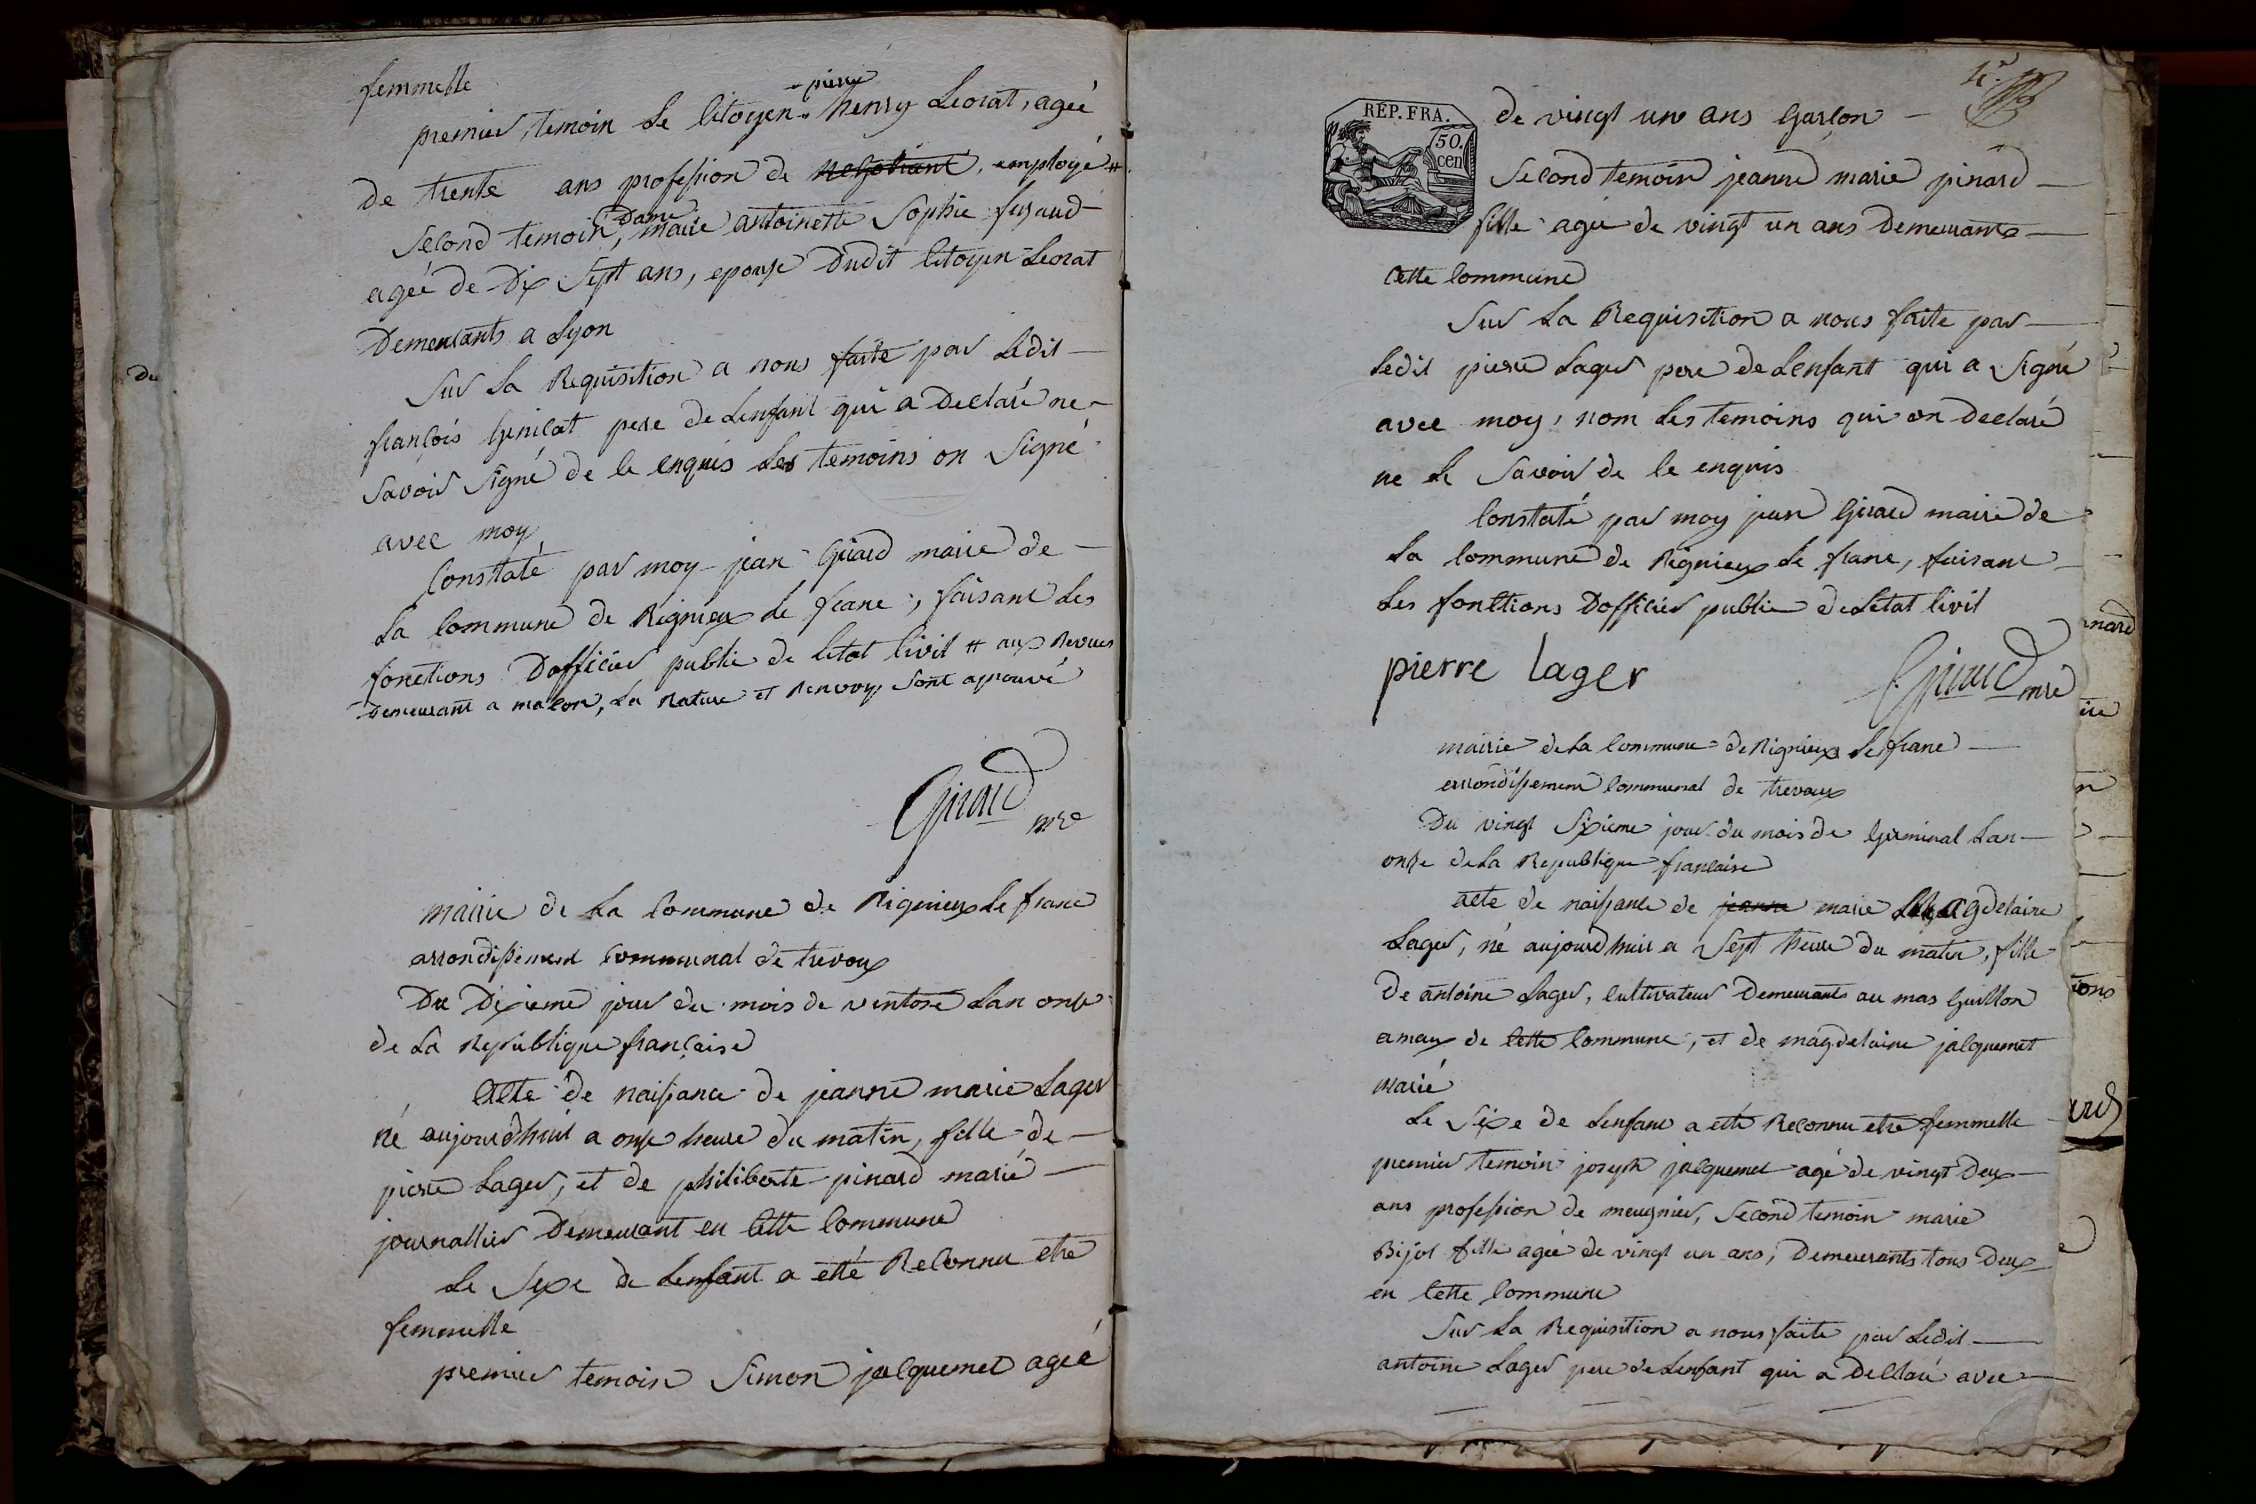 femmelle
+ pierre
premier temoin Le Citoyen + henry Leorat, ageé
de trente ans profession de negotiant, employé #
Dame
Second temoin, marie antoinette Sophie
ageé de Dix Sept ans, epouse Dudit Citoyen Leorat
Demeurants a Lyon
Sur La Requisition a nous faite par Ledit
françois Genicat pere de Lenfant qui a Declaré ne
Savoir Signé de le enquis Les temoins on Signé
avec moy
Constaté par moy jean Girard maire de
La Commune de Rignieux Le franc, faisant Les
fonctions Dofficier public de Letat Civil # aux Revues
Demeurant a macon, La Rature et Renvoy Sont aprouvé
Girard mre
mairie de La Commune de Rignieux Le franc
arrondissement Communal de trevoux
Du Dixieme jour du mois de ventose Lan onze
de La Republique française
Acte de naissance de jeanne marie Lager
né aujourdhuit a onze heure du matin, fille de
pierre Lager, et de philiberte pinard marié
journallier Demeurant en Cette Commune
Le Sexe de Lenfant a etté Reconnu etre
femmelle
premier temoin Simon jalquemet ageé
Du
REP. FRA.
50.
cen
de vingt un ans Garçon
Second temoin jeanne marie pinard
fille ageé de vingt un ans Demeurants
Cette Commune
Sur La Requisition a nous faite par
Ledit pierre Lager pere de Lenfant qui a Signé
avec moy, nom Les temoins qui on Declaré
ne Le Savoir de le enquis
Constaté par moy jean Girard maire de
La Commune de Rignieux Le franc, faisant
Les fonctions Dofficier public de Letat Civil
pierre lager
Girard mre
mairie de La Commune de Rignieux Le franc
arrondissement Communal de trevoux
Du vingt Sixieme jour du mois de Germinal Lan
onze de La Republique francaise
acte de naissance de jeanne marie Magdelaine
Lager, né aujourdhuit a Sept heure du matin, fille
De antoine Lager, Cultivateur Demeurants au mas Guillon
amaux de Cette Commune, et de magdelaine jalquemet
marié
Le Sexe de Lenfant a etté Reconnu etre femmelle
premier temoin joseph jalquemet agé de vingt Deux
ans profession de meugnier, Second temoin marie
Bijot fille ageé de vingt un ans, Demeurants tous Deux
en Cette Commune
Sur La Requisition a nous faite par Ledit
antoine Lager pere de Lenfant qui a Declaré avec